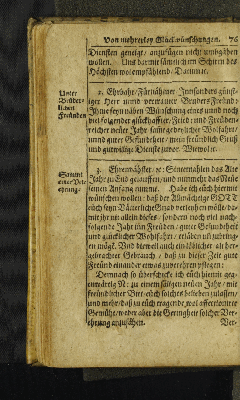 Von mehrerley Glückwünschungen. 76
Diensten geneigt / anzufügen nicht umbgehen
wollen. Uns darmit sämmtlich dem Schirm des
Höchsten wol empfählend. Datum ꝛc.
Unter
Brüder-
lichen
Freunden
2. Ehrbahr / Fürnähmer / Innsonders günsti-
ger Herr und vertrauter Bruders Freund:
Ihme seyn nähen Wünschung eines und noch
viel folgender glückhaffter / Fried- und Freuden-
reicher neuer Jahr / sampt gedeylicher Wolfahrt /
und guter Gesundheit / mein freundlich Gruß
und gutwillige Dienste zuvor.
Sammt
einer Ver-
ehrung.
3. Ehrnvähster / ꝛc: Sintemahlen das Alte
Jahr zu End geloffen / und nunmehr das Neue
seinen Anfang nimmt. Habe ich euch hiermit
wünschen wollen / daß der Allmächtige GOTT
euch seyn Väterliche Gnad verleyhen wölle / da-
mit ihr nit allein dieses / sondern noch viel nach-
folgende Jahr in Freuden / guter Gesundheit
und glücklicher Wohlfahrt / erläben und zubringen
mögt. Und dieweil auch ein löblicher alt her-
gebrachter Gebrauch / daß zu dieser Zeit gute
Freund einander etwas zu verehren pflegen:
Demnach so überschicke ich euch hiermit ge-
genwärtigs N: zu einem säligen neuen Jahr / mit
freundlicher Bitt / euch solches belieben zu lassen /
und mehr / daß zu euch tragende wol affectionirte
Gemüht / weder aber die Geringheit solcher Ver-
ehrung anzusehen. Ver-